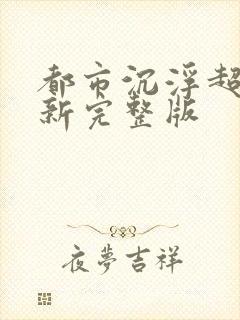 都市沉浮超
新完整版
夜夢吉祥